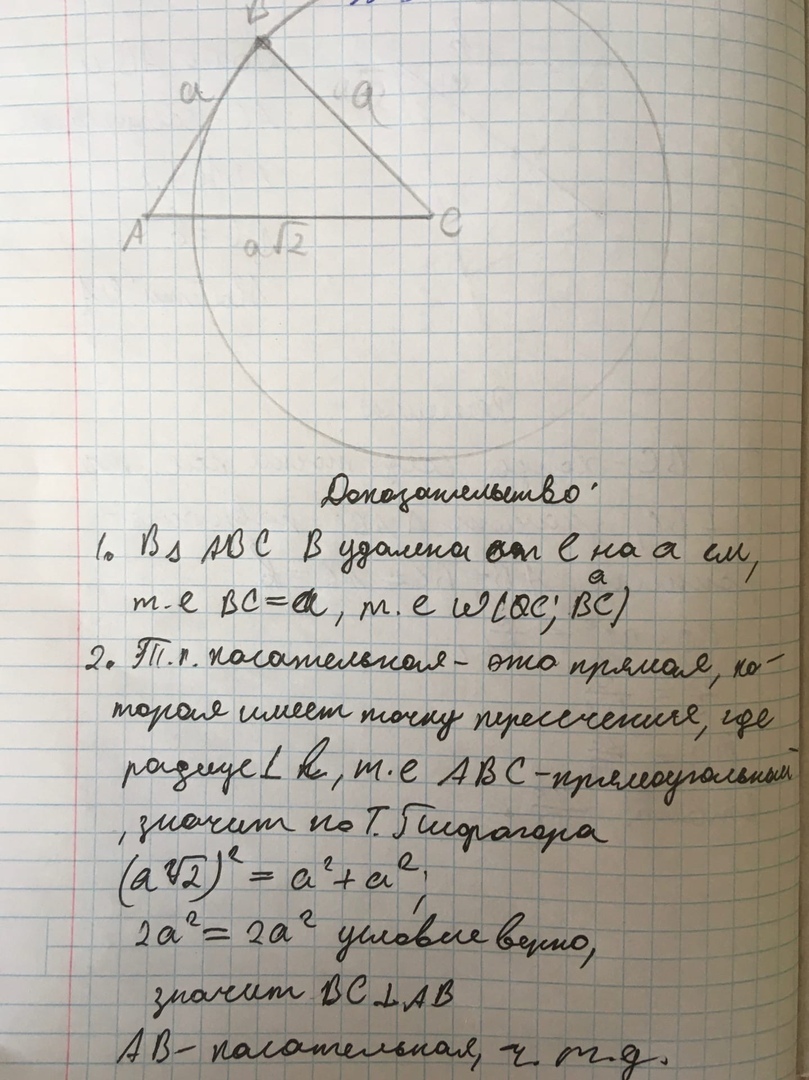 B
a
a
A
C
a√2
Доказательство:
1. В △ ABC B удалена от C на a см,
т.е BC=a, т.е ω(C; BC)
a
2. Т.к. касательная – это прямая, ко-
торая имеет точку пересечения, где
радиус ⊥ к, т.е ABC – прямоугольный
, значит по Т. Пифагора
(a√2)² = a² + a²;
2a² = 2a² условие верно,
значит BC ⊥ AB
AB – касательная, ч. т.д.